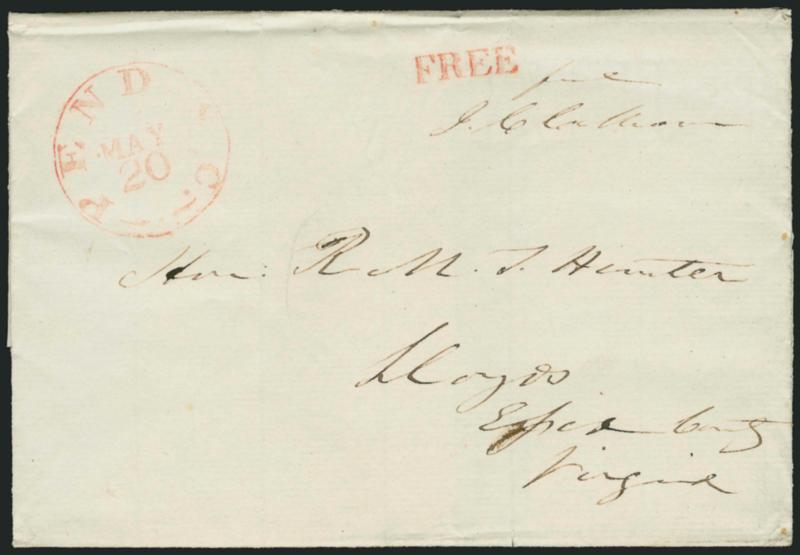 FREE
free
J. C. Calhoun
PEND S.C.
MAY
20
Hon: R. M. T. Hunter
Lloyds
Essex County
Virginia